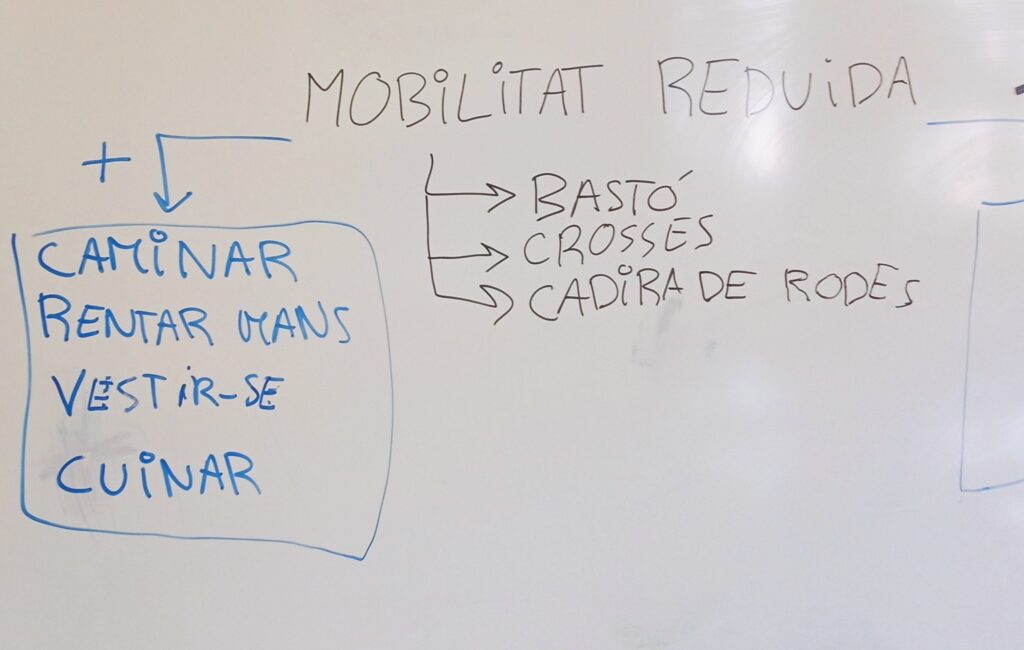 MOBILITAT REDUIDA
+
CAMINAR
RENTAR MANS
VESTIR-SE
CUINAR
BASTÓ
CROSSES
CADIRA DE RODES